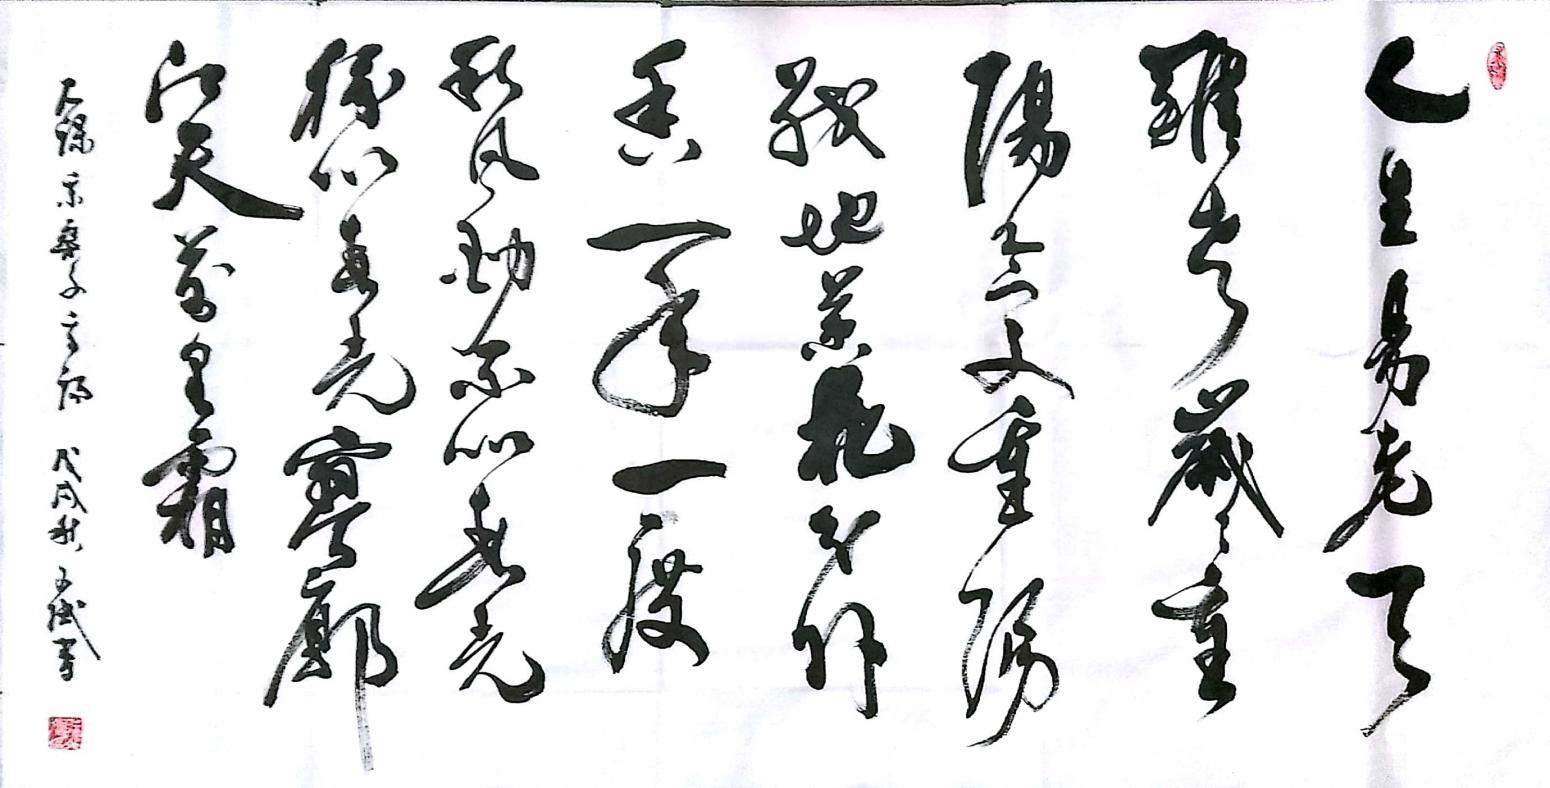 人生易老天
難老歲々重
陽今又重陽
戰地黃花分外
香一年一度
秋风劲不似春光
勝似春光寥廓
江天萬里霜
采桑子 戊戌秋 書